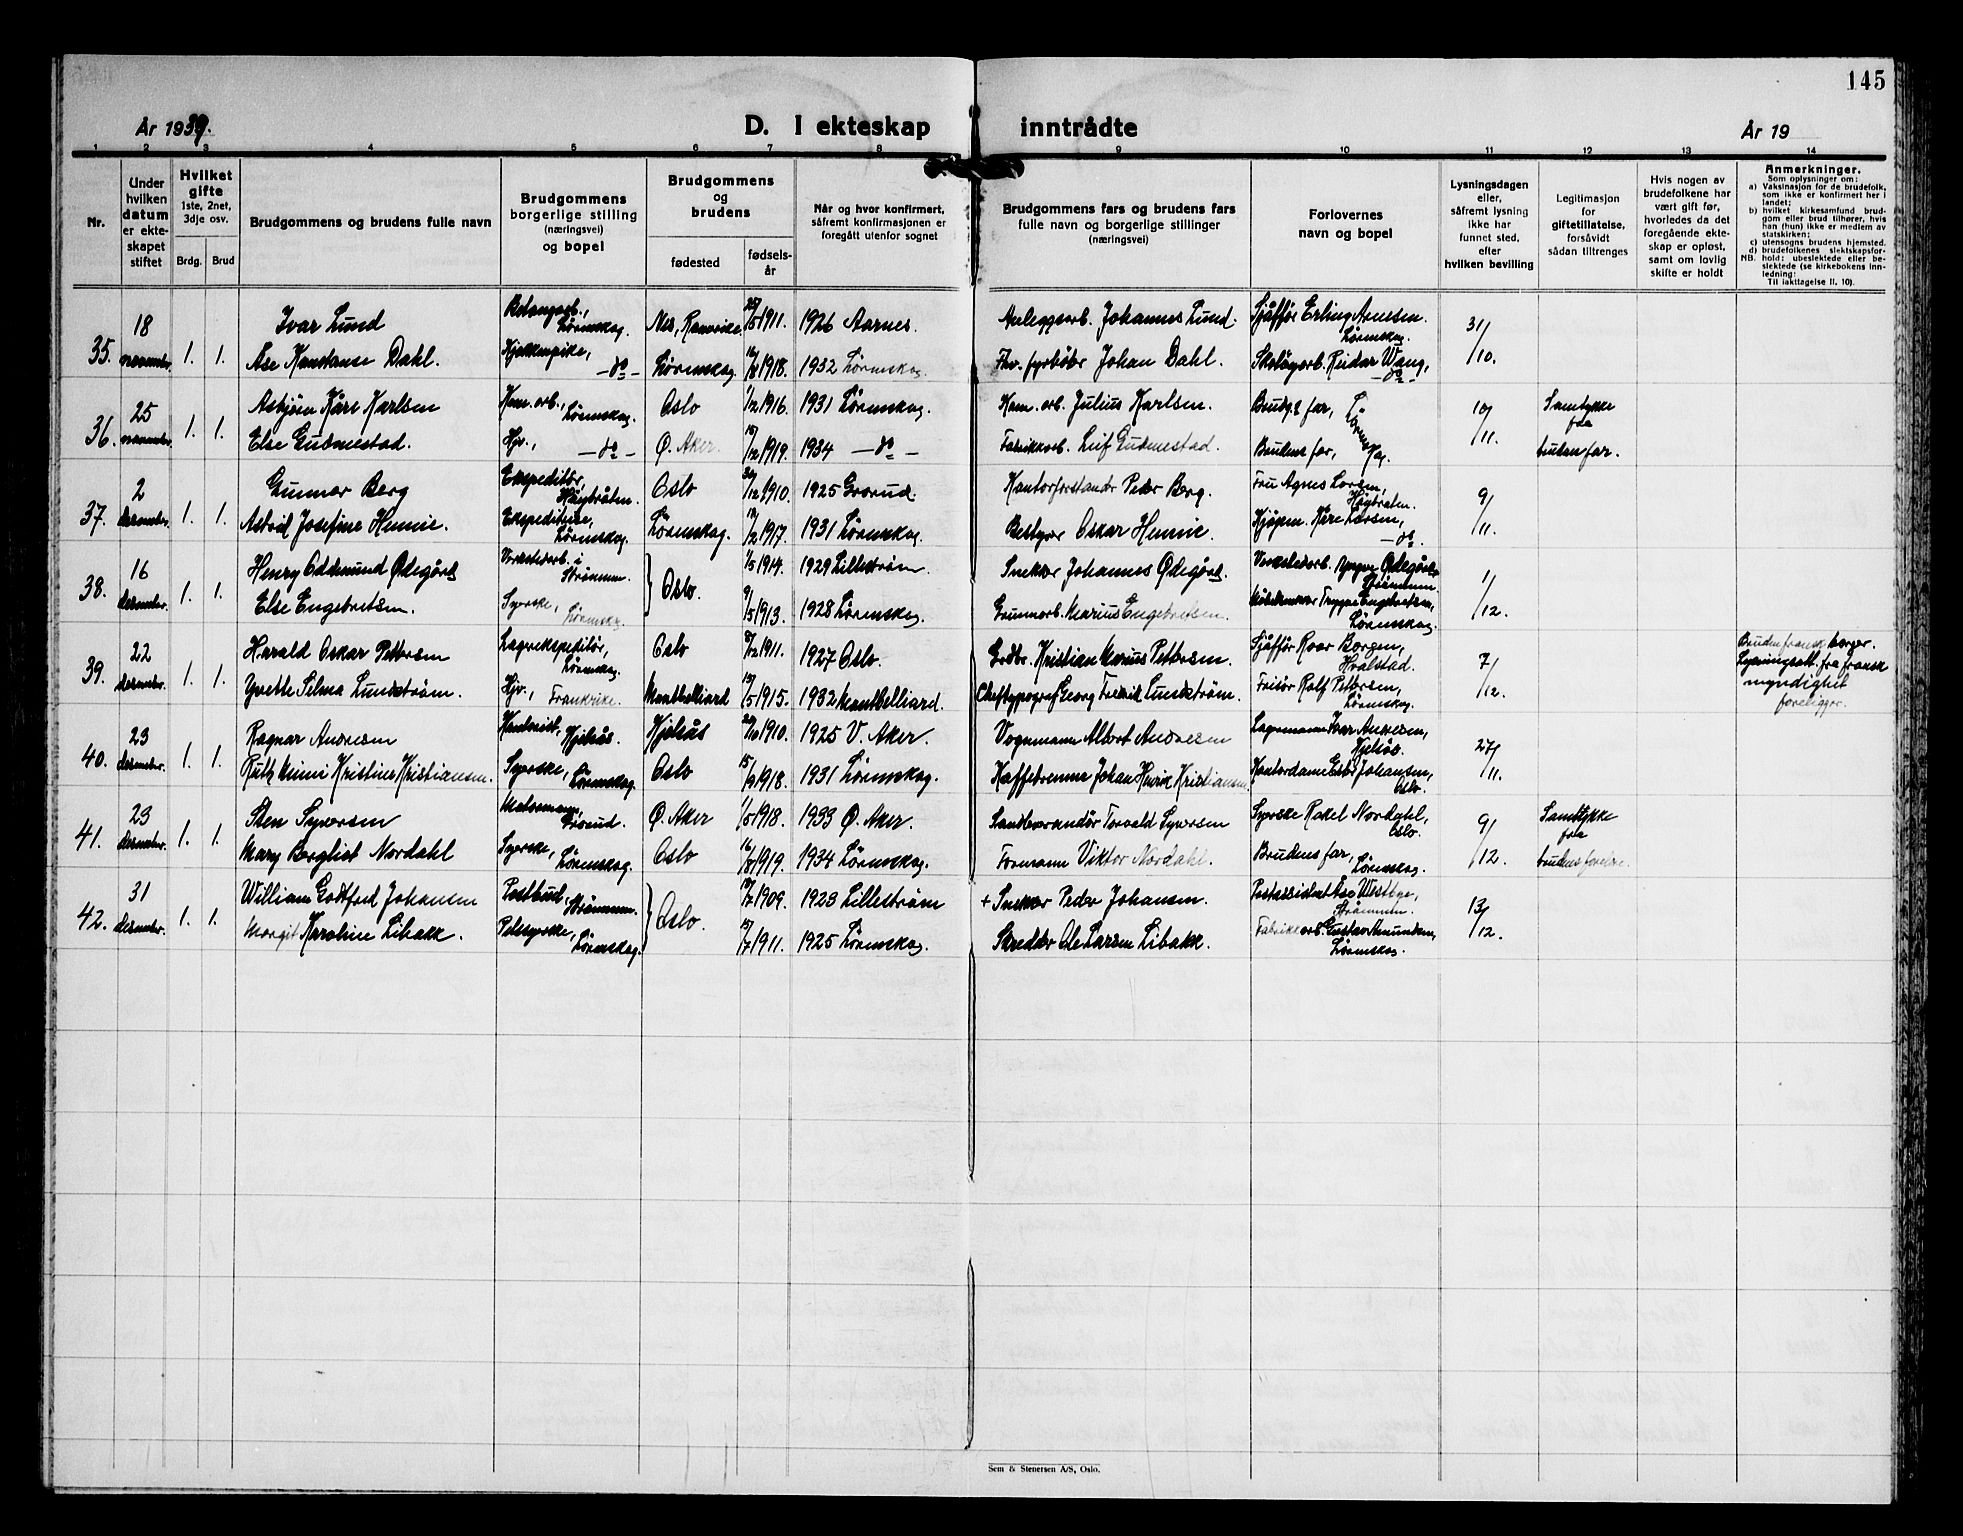 145
År 1939.
D. I ekteskap inntrådte
År 19
1 2 3 4 5 6 7 8 9 10 11 12 13 14
Nr.
Under hvilken datum er ekteskapet stiftet
Hvilket gifte
1ste, 2net, 3dje osv.
Brdg. Brud
Brudgommens og brudens fulle navn
Brudgommens borgerlige stilling (næringsvei) og bopel
Brudgommens og brudens
fødested
fødselsår
Når og hvor konfirmert, såfremt konfirmasjonen er foregått utenfor sognet
Brudgommens fars og brudens fars fulle navn og borgerlige stillinger (næringsvei)
Forlovernes navn og bopel
Lysningsdagen eller, såfremt lysning ikke har funnet sted, efter hvilken bevilling
Legitimasjon for giftetillatelse, forsåvidt sådan tiltrenges
Hvis nogen av brudefolkene har vært gift før, hvorledes da det foregående ekteskap er opløst, samt om lovlig skifte er holdt
Anmerkninger.
Som oplysninger om:
a) Vaksinasjon for de brudefolk, som ikke er konfirmert her i landet;
b) hvilket kirkesamfund brudgom eller brud tilhører, hvis han (hun) ikke er medlem av statskirken;
c) utensogns brudens hjemsted.
d) brudefolkenes slektskapsforhold: ubeslektede eller beslektede (se kirkebokens innledning:
NB.
Til iakttagelse II. 10).
35. 18 november. 1. 1.
Ivar Lund Lørenskog. Nes, Romerike. 1911. 1926 Aarnes. Anleggsarb. Johannes Lund. Sjåffør Erling Arnesen. Lørenskog. 31/10.
Åse Konstanse Dahl. Kjøkkenpike, -do- Lørenskog. 1918. 1932 Lørenskog. Fhv. fyrbøter Johan Dahl. Reidar Wang, -do-
36. 25 november. 1. 1.
Asbjørn Kåre Karlsen Kom. arb., Lørenskog. Oslo 1/12 1916. 1931 Lørenskog. Kom. arb. Julius Karlsen. Brudg.s far, Lørenskog. 10/11. Samtykke fra
Else Gudmestad. Hjv., -do- Ø. Aker. 1919. 1934 -do- Fabrikkarb. Leif Gudmestad. Brudens far, brudens far.
37. 2 desember. 1. 1.
Gunnar Berg Ekspeditør, Høybråten. Oslo 1910. 1925 Grorud. Kontorforstander Peder Berg. Fru Agnes Larsen, Høybråten. 9/11.
Astrid Josefine Hennie. Ekspeditrise, Lørenskog. Lørenskog. 1917. 1931 Lørenskog. Bestyrer Oskar Hennie. Kjøpm. Kåre Larsen, -do-.
38. 16 desember. 1. 1.
Henry Oddmund Ødegård Verkstedarb. i Strømmen. Oslo. 1/5 1914. 1929 Lillestrøm. Snekker Johannes Ødegård. Verkstedarb. Yngve Ødegård Strømmen. 1/12.
Else Engebretsen. Syerske, Lørenskog 9/5 1913. 1928 Lørenskog. Marius Engebretsen. Trygve Engebretsen, Lørenskog.
39. 22 desember. 1. 1.
Harald Oskar Pettersen Lagerekspeditør, Lørenskog. Oslo 1911. 1927 Oslo. Grdbr. Kristian Marius Pettersen. Sjåffør Roar Borgen, Hvalstad. 7/12. Bruden fransk borger.
Yvette Selma Lundstrøm. Hjv., Frankrike. Montbelliard 1915. 1932 Montbelliard. Cheftypograf Georg Fredrik Lundstrøm. Frisør Rolf Pettersen, Lørenskog. Lysningsatt. fra fransk
myndighet foreligger.
40. 23 desember. 1. 1.
Ragnar Andresen Kontorist, Kjelsås. Kjelsås 1910. 1925 V. Aker. Vognmann Albert Andresen Lagermann Ivar Andresen, Kjelsås. 27/11.
Ruth Mimi Kristine Kristiansen. Syerske, Lørenskog. Oslo 15/9 1918. 1931 Lørenskog. Kaffebrenner Johan Henrik Kristiansen. Kontordame Ester Johansen, Oslo.
41. 23 desember. 1. 1.
Sten Syversen Grorud. Ø. Aker 1918. 1933 Ø. Aker. Sandleverandør Torvald Syversen Syerske Rakel Nordahl, Oslo. 9/12. Samtykke fra
Mary Bergliot Nordahl Syerske, Lørenskog. Oslo 1919. 1934 Lørenskog. Formann Viktor Nordahl. Brudens far, Lørenskog. brudens foreldre.
42. 31 desember. 1. 1.
William Godtfred Johansen Postbud, Strømmen. Oslo. 1909. 1923 Lillestrøm + Snekker Peder Johansen. Postassistent Åse Westbye, Strømmen. 13/12.
Margit Karoline Libakk. Pelssyerske, Lørenskog. 1911. 1925 Lørenskog. Skredder Ole Larsen Libakk. Fabrikkarb. Gustav Amundsen, Lørenskog.
Sem & Stenersen A/S, Oslo.